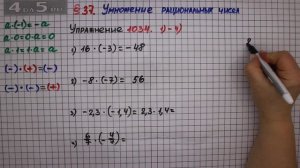 4 DA 5 RS
§ 37. Умножение рациональных чисел
Упражнение 1034. 1) - 4)
a·(-1) = -a
a·0 = 0·a = 0
a·1 = 1·a = a
(-)·(+) = (-)
(-)·(-) = (+)
1) 16·(-3) = -48
2) -8·(-7) = 56
3) -2,3·(-1,4) = 2,3·1,4 =